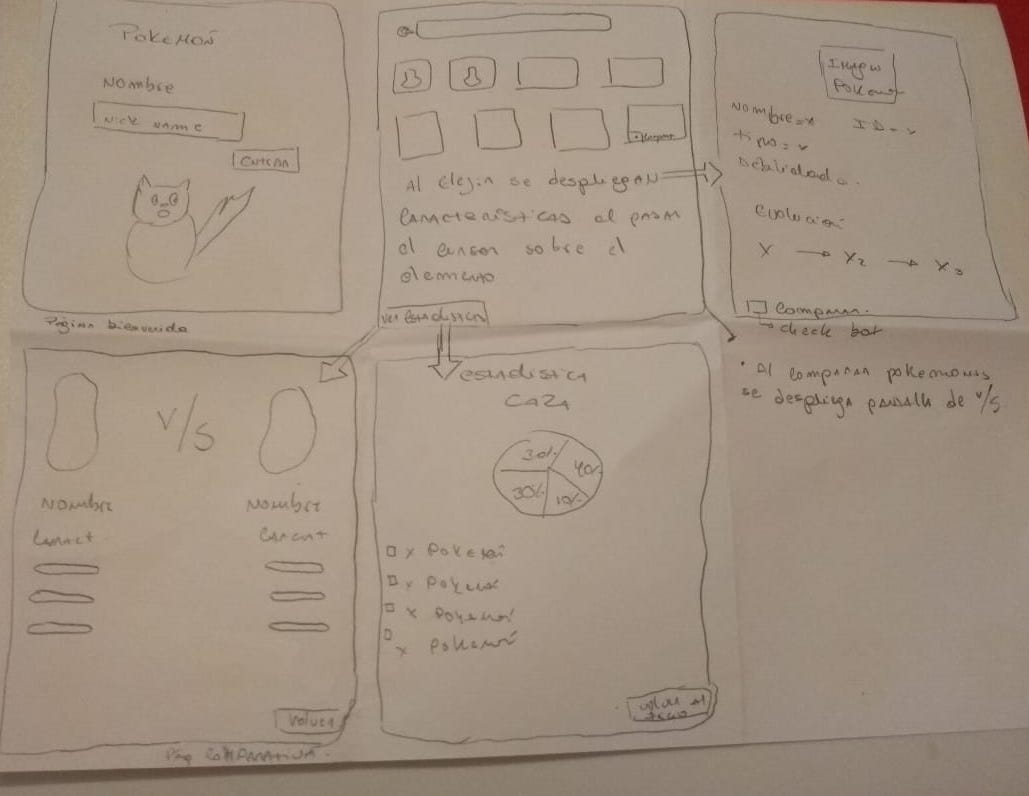 Pokemoñ
Nombre
Nick name
Entrar
Página bienvenida
Al elejir se despliegan
características al pasar
el cursor sobre el
elemento
Ver Estadistica
Imagen
Pokemon
Nombre = x ID = x
tipo = x
Debilidad
Evolución
X → X2 → X3
Comparar
check box
• Al comparar pokemones
se despliega pantalla de v/s
V/S
Nombre Nombre
Caract Caract
Volver
Pág comparativa
estadistica
CAZA
30% 40%
30% 10%
x Pokemoñ
x Pokemoñ
x Pokemoñ
x Pokemoñ
Volver al